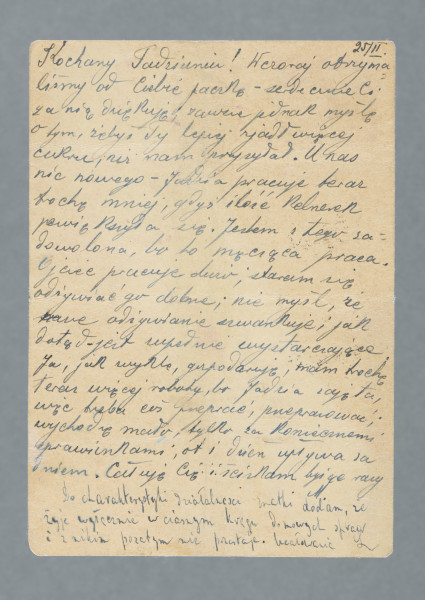 25/II
Kochany Tadziuniu! Wczoraj otrzyma=
liśmy od Ciebie paczkę - serdecznie Ci
za nią dziękuję, zawsze jednak myślę
o tym, żebyś Ty lepiej zjadł więcej
cukru, niż nam przysyłał. U nas
nic nowego - Jadzia pracuje teraz
trochę mniej, gdyż ilość kelnerek
powiększyła się. Jestem z tego za-
dowolona, bo to męcząca praca.
Ojciec pracuje dużo, staram się
odżywiać go dobrze, i nie myśl, że
nasze odżywianie szwankuje, jak
dotąd - jest zupełnie wystarczające
Ja, jak zwykle, gospodaruję, mam trochę
teraz więcej roboty, bo Jadzia zajęta,
więc trzeba coś przeprać, przeprasować,
wychodzę mało, tylko za koniecznemi
sprawunkami, ot i dzień upływa za
dniem. Całuję Cię i ściskam razy
Do charakterystyki działalności matki dodam, że
żyje wyłącznie w ciasnym kręgu domowych spraw
i z nikim pozatym nie